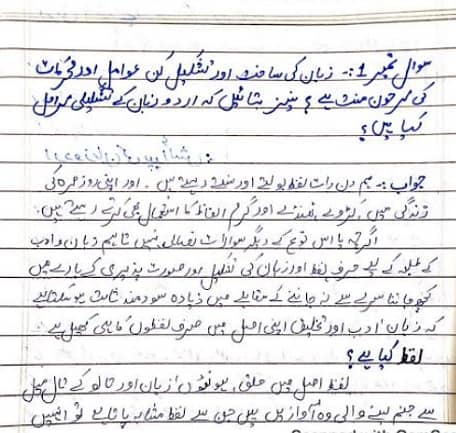 سوال نمبر 1:- زبان کی ساخت اور تشکیل کن عوامل اور محرکات
کی مرہون منت ہے؟ نیز بتائیں کہ اردو زبان کے تشکیلی مراحل
کیا ہیں؟
جواب:- ہم دن رات لفظ بولتے اور سنتے رہتے ہیں۔ اور اپنی روزمرہ کی
زندگی میں کڑوے، ٹھنڈے اور گرم الفاظ کا استعمال بھی کرتے رہتے ہیں۔
اگرچہ یا اس نوع کے دیگر سوالات نہیں تاہم زبان و ادب
کے طلبہ کے لیے حرف لفظ اور زبان کی تشکیل اور صورت پذیری کے بارے میں
کچھ جاننا سرے سے نہ جاننے کے مقابلے میں زیادہ سودمند ثابت ہو سکتا ہے
کہ زبان ادب اور تخلیق اپنی اصل میں صرف لفظوں کا ہی کھیل ہے۔
لفظ کیا ہے؟
لفظ اصل میں حلق، ہونٹوں، زبان اور تالو کے تال میل
سے جنم لینے والی وہ آوازیں ہیں جن سے لفظ بنتا ہے تو انہیں